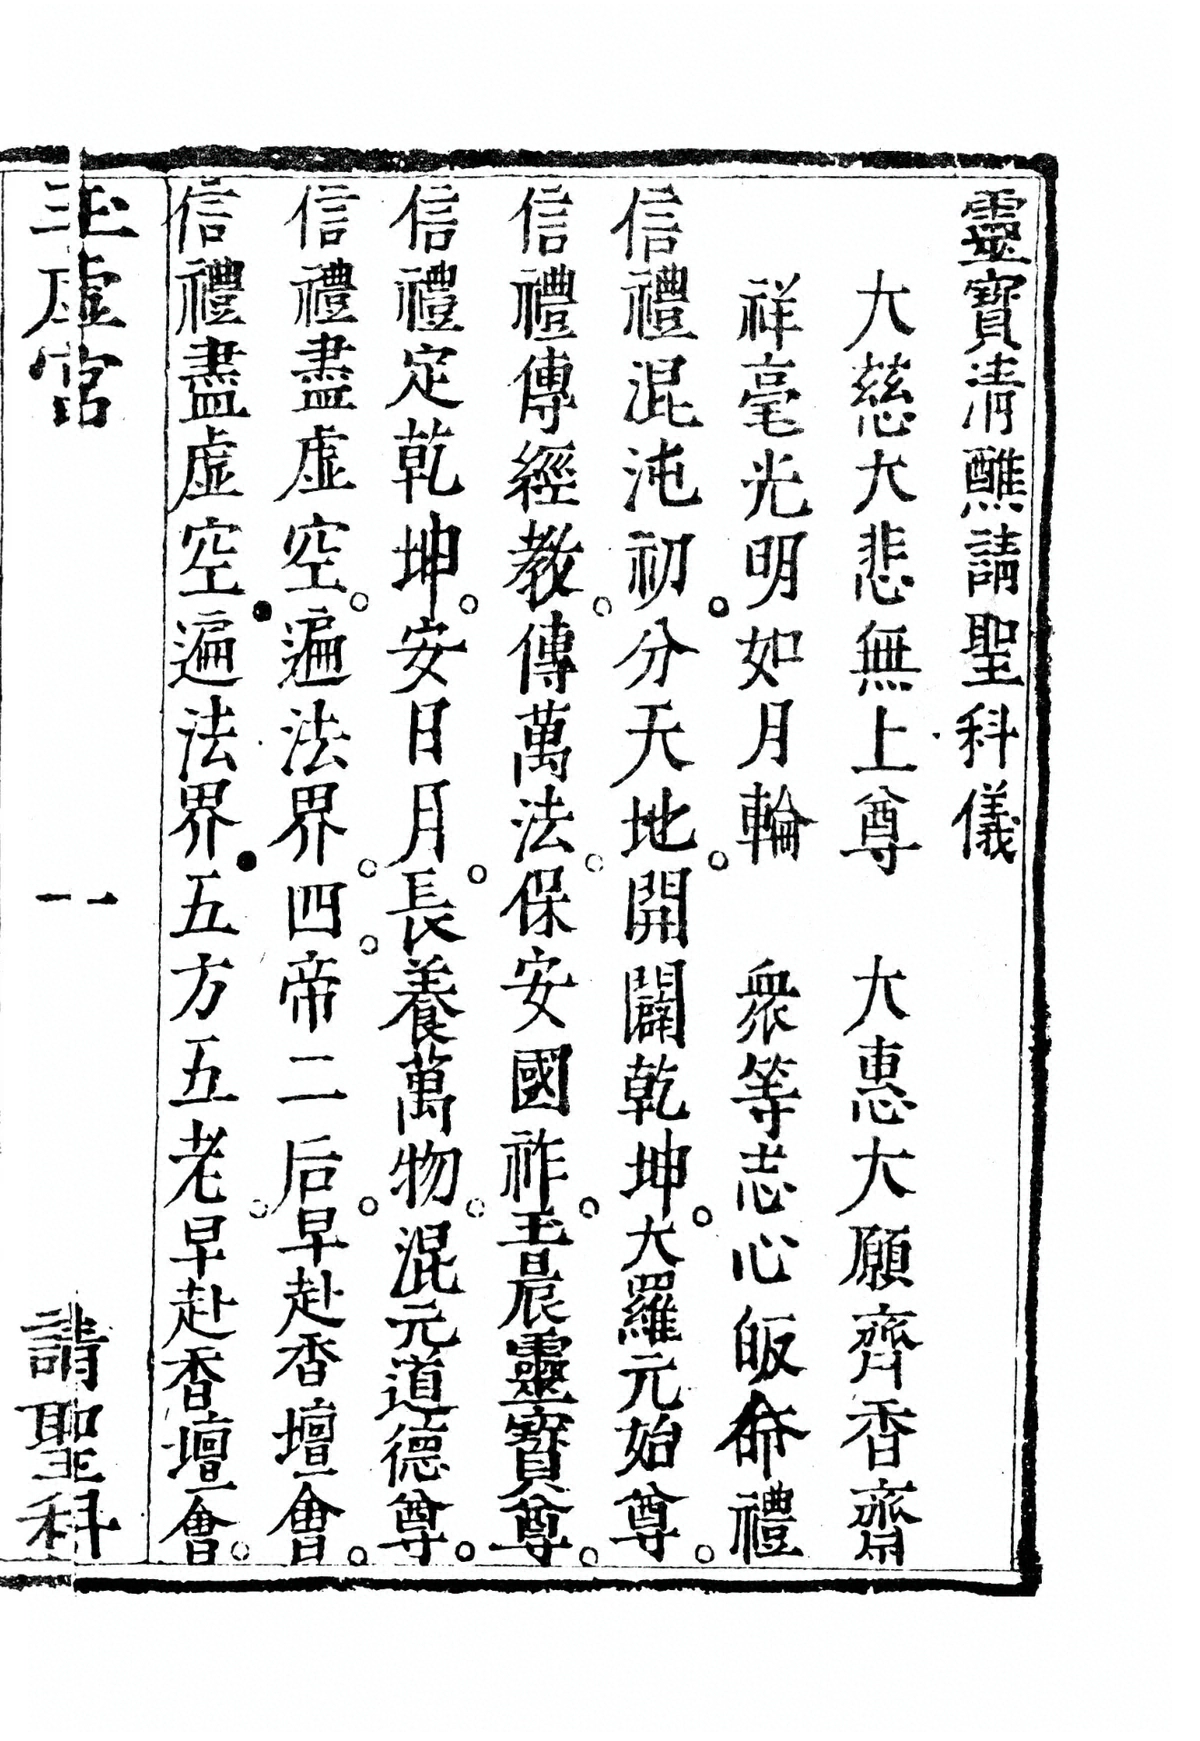 靈寶清醮請聖科儀
大慈大悲無上尊　大惠大願齊香齋
祥毫光明如月輪　衆等志心皈命禮
信禮混沌初。分天地。開闢乾坤。大羅元始尊。
信禮傳經教。傳萬法。保安國祚。玉晨靈寶尊。
信禮定乾坤。安日月。長養萬物。混元道德尊。
信禮盡虛空。遍法界。四。帝二后。早赴香壇會。
信禮盡虛空。遍法界。五方五老。早赴香壇會。
玉虛宮　一　請聖科